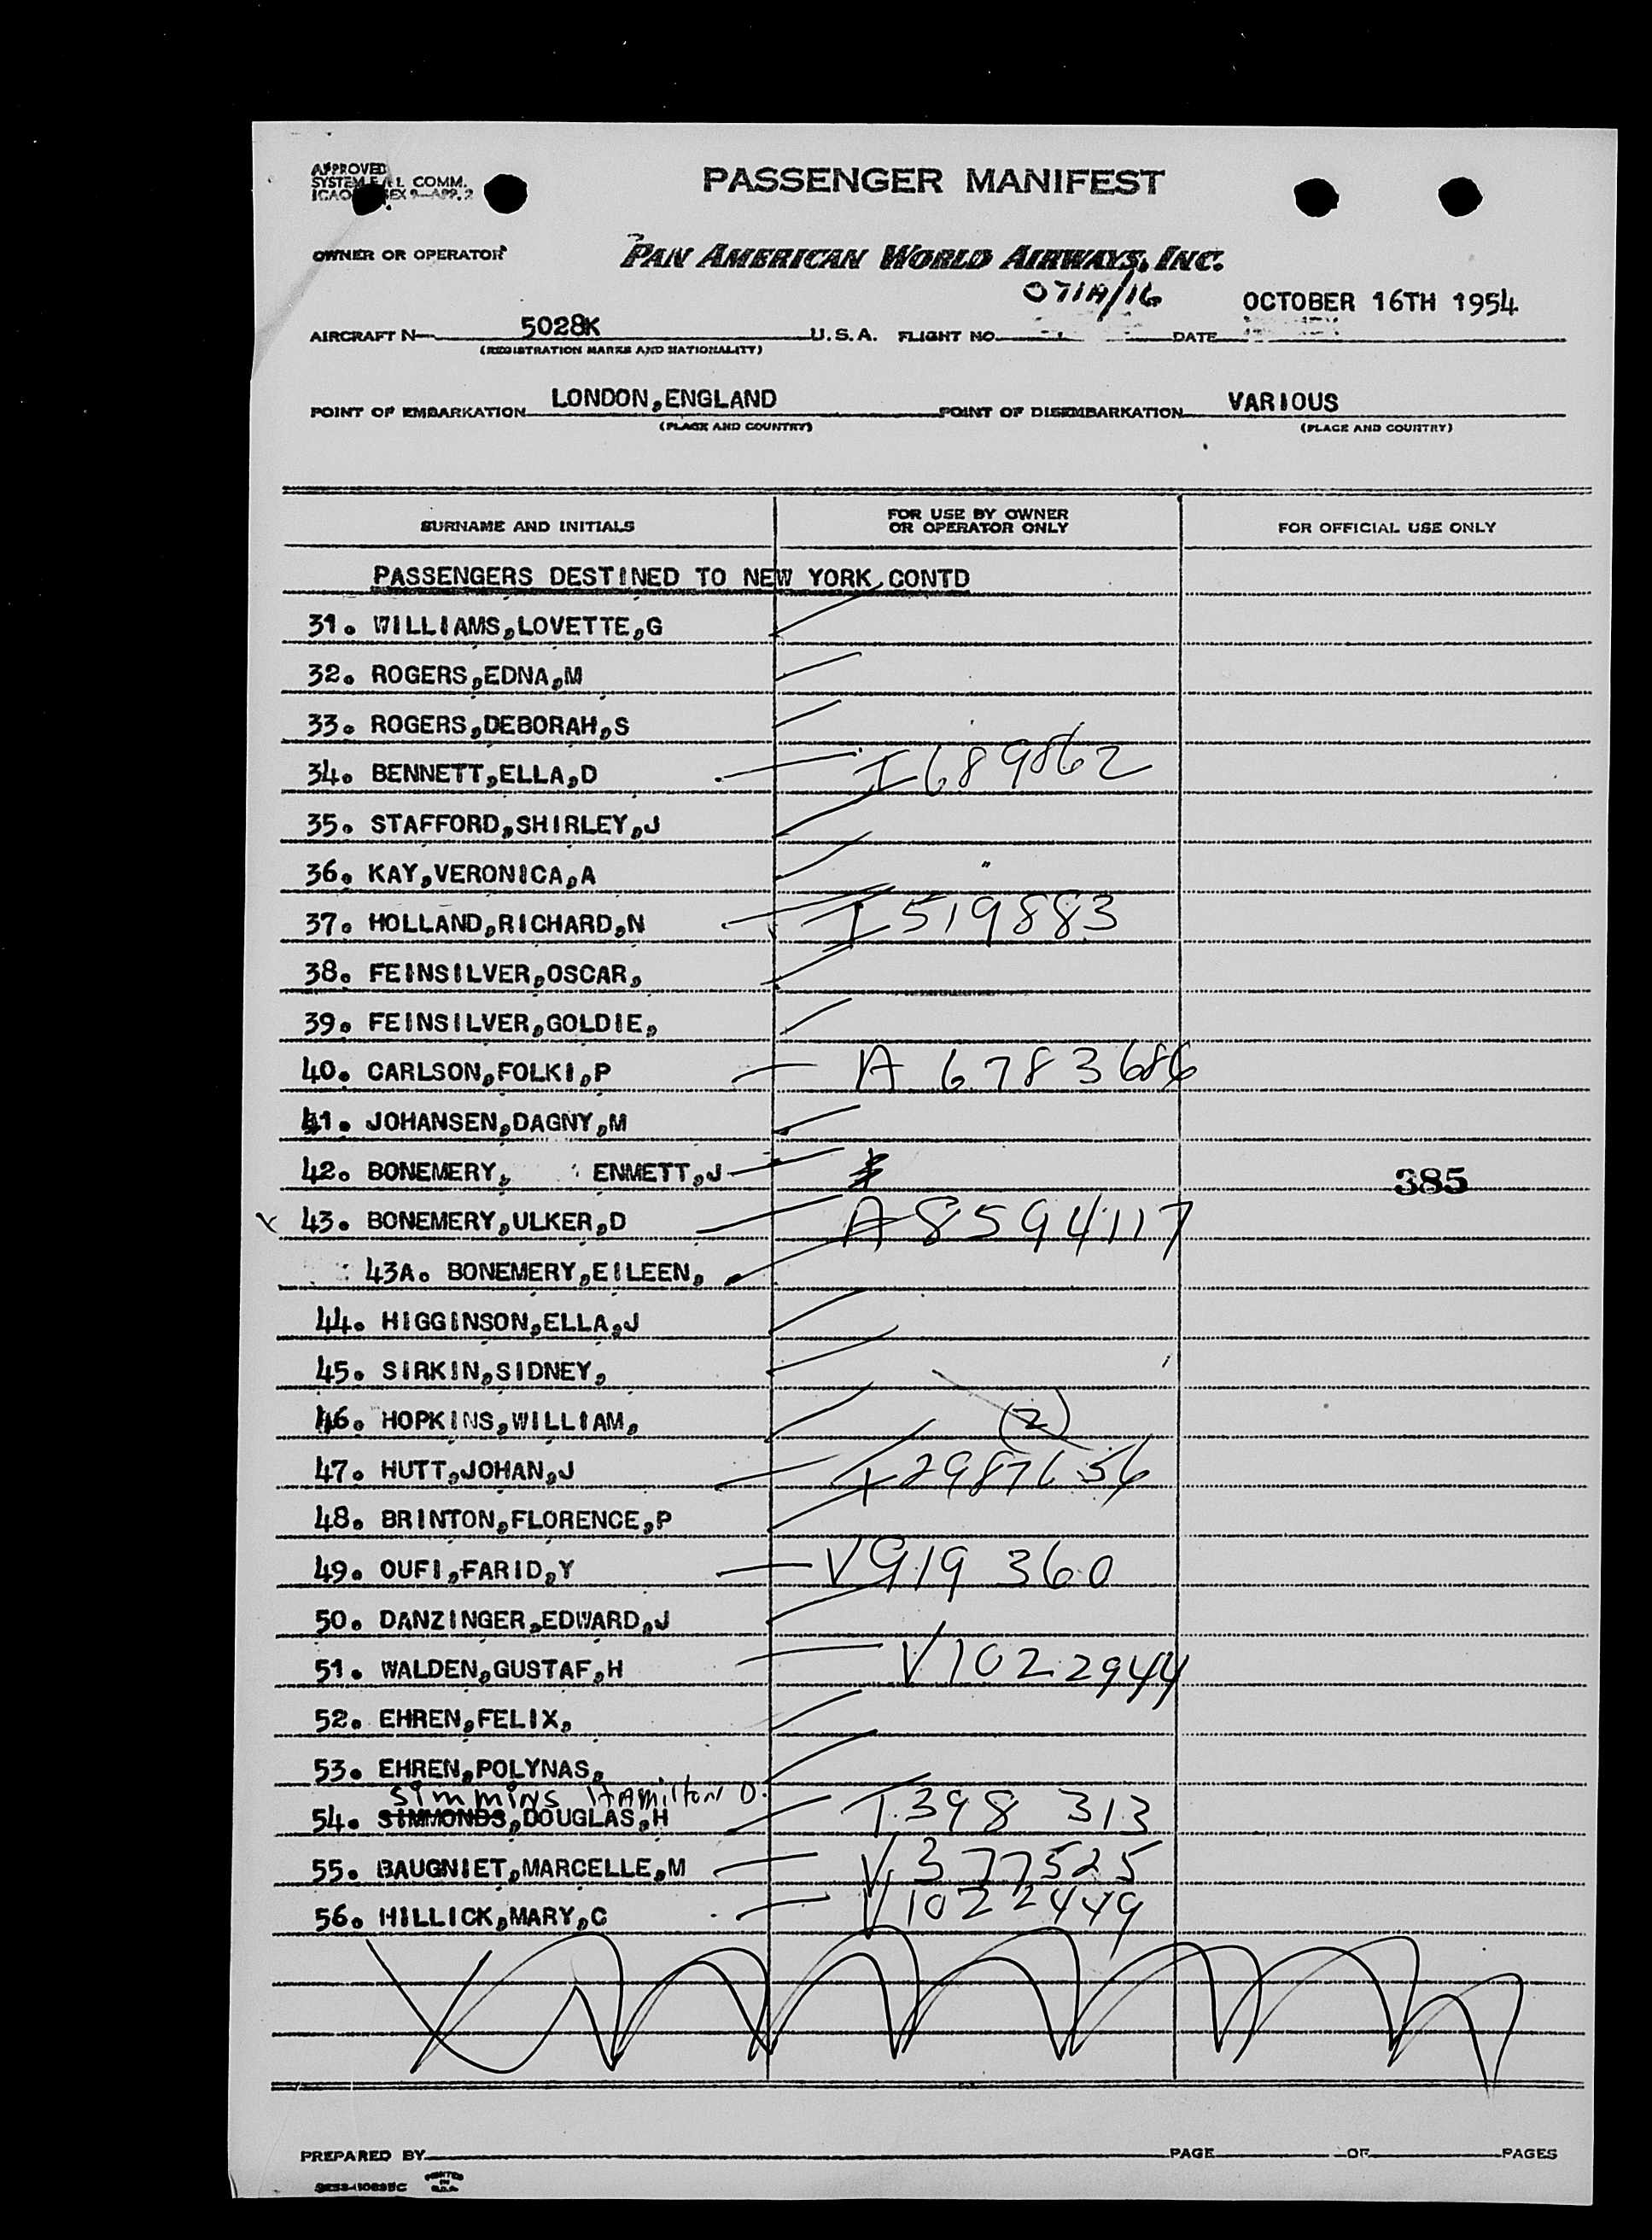 APPROVED
SYSTEM COMM.
PASSENGER MANIFEST
OWNER OR OPERATOR PAN AMERICAN WORLD AIRWAYS, INC.
071A/16
OCTOBER 16TH 1954
AIRCRAFT N 5028K U.S.A. FLIGHT NO. DATE
(REGISTRATION MARKS AND NATIONALITY)
POINT OF EMBARKATION LONDON,ENGLAND POINT OF DISEMBARKATION VARIOUS
(PLACE AND COUNTRY) (PLACE AND COUNTRY)
SURNAME AND INITIALS FOR USE BY OWNER OR OPERATOR ONLY FOR OFFICIAL USE ONLY
PASSENGERS DESTINED TO NEW YORK CONTD
31. WILLIAMS,LOVETTE,G
32. ROGERS,EDNA,M
33. ROGERS,DEBORAH,S
34. BENNETT,ELLA,D I689862
35. STAFFORD,SHIRLEY,J
36. KAY,VERONICA,A "
37. HOLLAND,RICHARD,N I519883
38. FEINSILVER,OSCAR,
39. FEINSILVER,GOLDIE,
40. CARLSON,FOLKI,P A 6783686
41. JOHANSEN,DAGNY,M
42. BONEMERY, ENMETT,J 385
43. BONEMERY,ULKER,D A8594117
43A. BONEMERY,EILEEN,
44. HIGGINSON,ELLA,J
45. SIRKIN,SIDNEY,
46. HOPKINS,WILLIAM, (2)
47. HUTT,JOHAN,J
48. BRINTON,FLORENCE,P
49. OUFI,FARID,Y V919 360
50. DANZINGER,EDWARD,J
51. WALDEN,GUSTAF,H V1022944
52. EHREN,FELIX,
53. EHREN,POLYNAS,
Simmins Hamilton D.
54. SIMMONDS,DOUGLAS,H I398 313
55. BAUGNIET,MARCELLE,M V377525
56. HILLICK,MARY,C V1022449
PREPARED BY PAGE OF PAGES
PRINTED IN U.S.A.